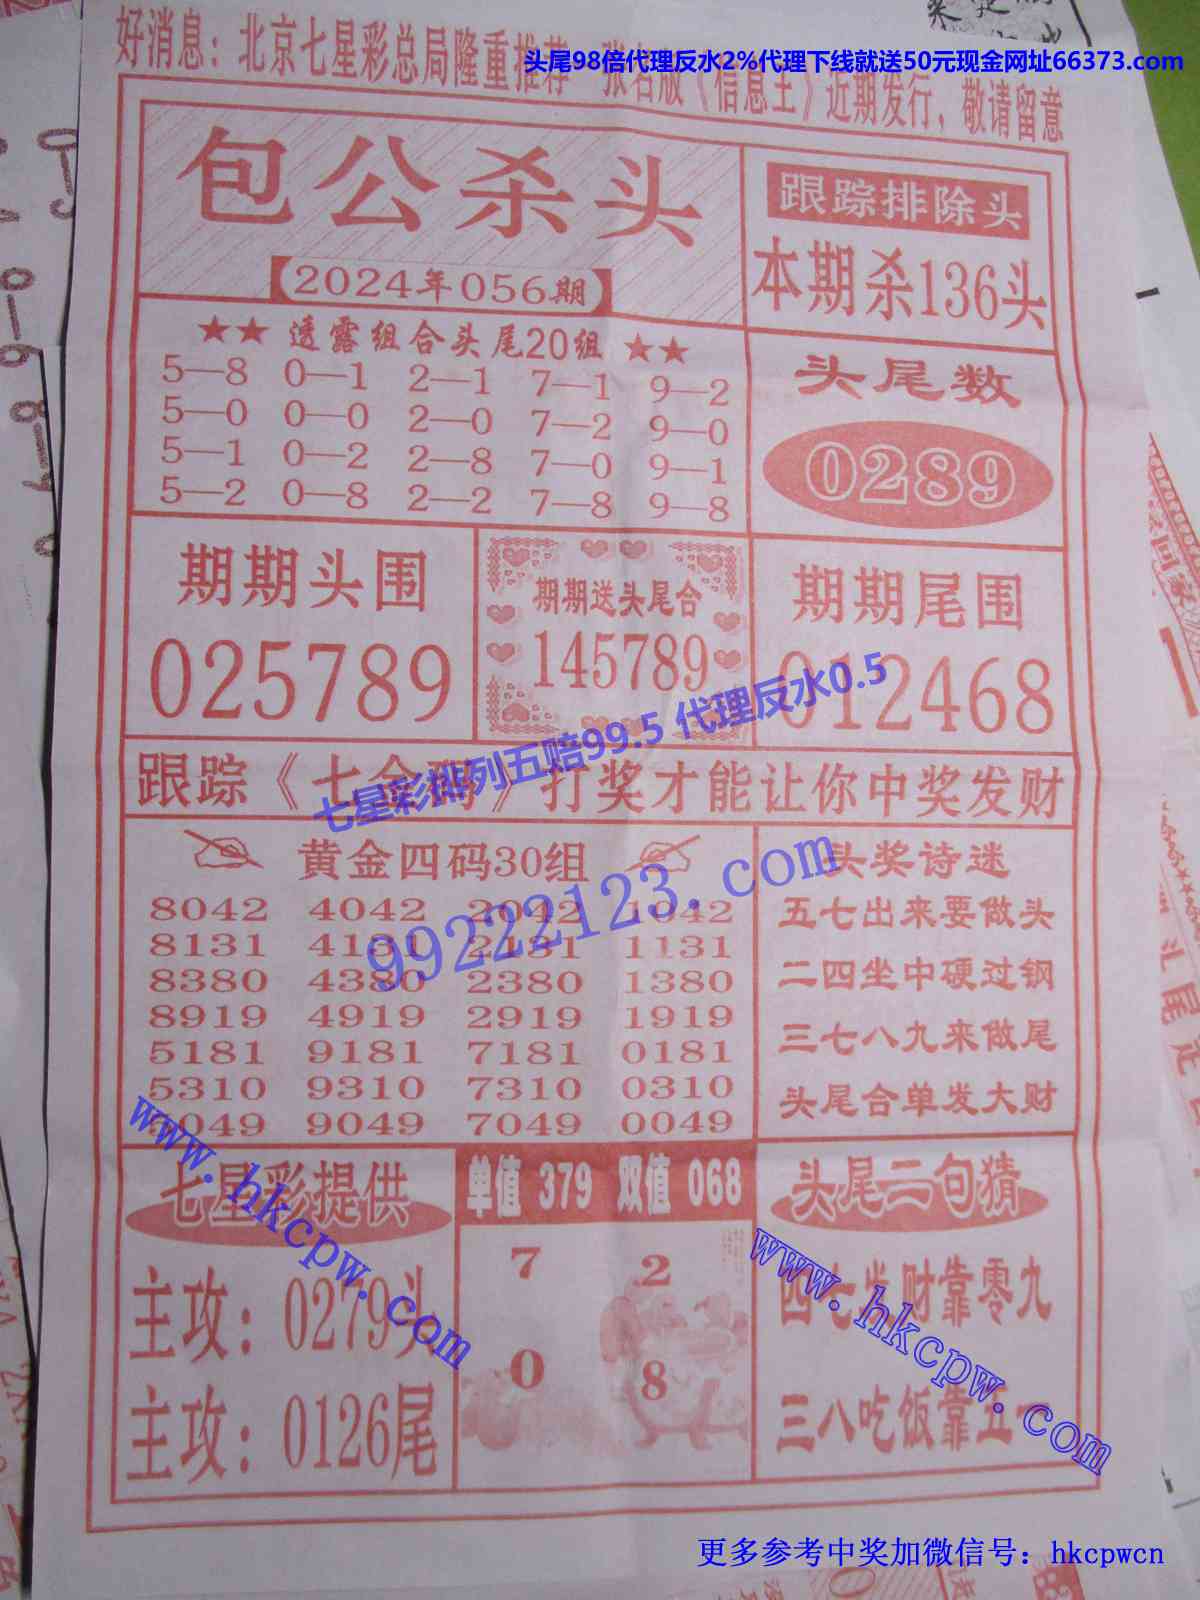 好消息：北京七星彩总局隆重推荐 张君版《信息王》近期发行，敬请留意
头尾98倍代理反水2%代理下线就送50元现金网址66373.com
包公杀头
【2024年056期】
跟踪排除头
本期杀136头
★★ 透露组合头尾20组 ★★
5—8 0—1 2—1 7—1 9—2
5—0 0—0 2—0 7—2 9—0
5—1 0—2 2—8 7—0 9—1
5—2 0—8 2—2 7—8 9—8
头尾数
0289
期期头围
025789
期期送头尾合
145789
期期尾围
012468
七星彩排列五赔99.5 代理反水0.5
跟踪《七金码》打奖才能让你中奖发财
黄金四码30组
8042 4042 2042 1042
8131 4131 2131 1131
8380 4380 2380 1380
8919 4919 2919 1919
5181 9181 7181 0181
5310 9310 7310 0310
5049 9049 7049 0049
99222123.com
头奖诗迷
五七出来要做头
二四坐中硬过钢
三七八九来做尾
头尾合单发大财
七星彩提供
主攻：0279头
主攻：0126尾
www.hkcpw.com
单值 379 双值 068
7 2
0 8
头尾二句猜
四七发财靠零九
三八吃饭靠五一
www.hkcpw.com
更多参考中奖加微信号：hkcpwcn